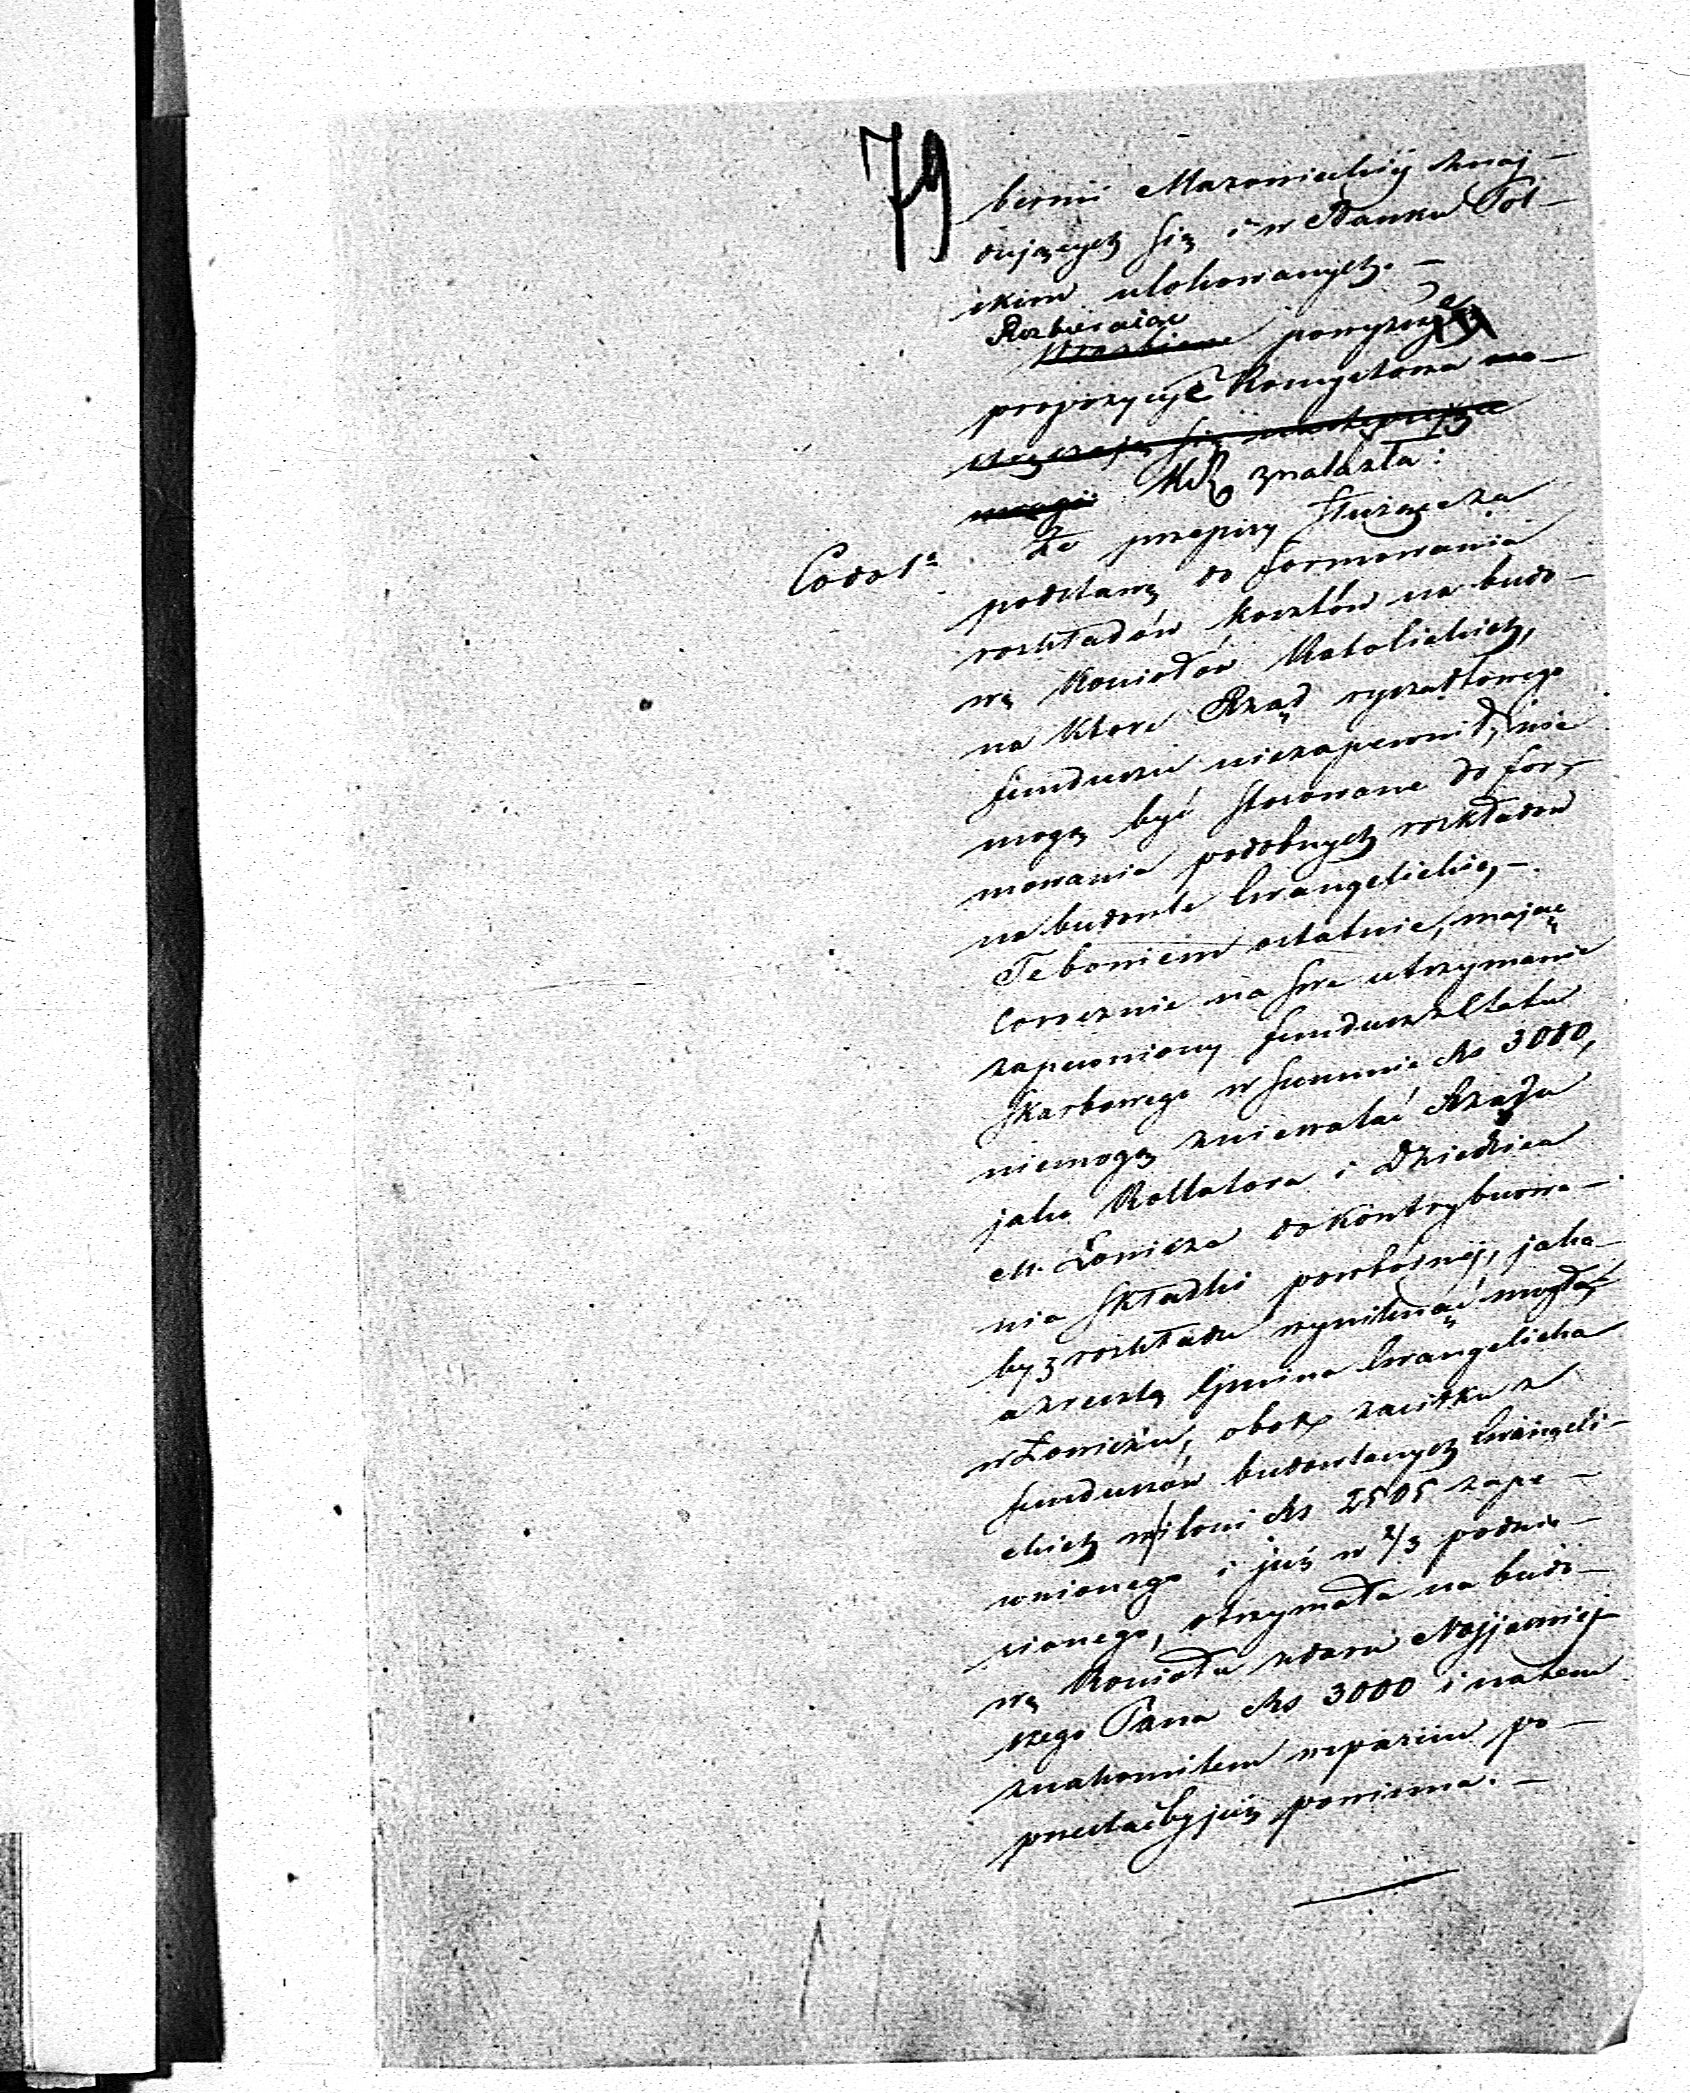 79
bernii Mazowieckiéj znaj-
dujących się i w Banku Pol-
skim ulokowanych. -
Rozbierając
powyższe
propozycye Konsystorza
znalazła:
Co do 1º
Że przepisy służące za
podstawę do formowania
rozkładów kosztów na budo-
wę Kościołów Katolickich,
na które Rząd ryczałtowego
funduszu niezapewnił, nie
mogą być stosowane do for-
mowania podobnych rozkładów
na budowle Ewangelickie, -
Te bowiem ostatnie, mając
corocznie na swe utrzymanie
zapewniony fundusz z Etatu
Skarbowego w summie Rs 3000,
niemogą zniewalać Rządu
jako Kollatora i Dziedzica
m. Łowicza do kontrybuowa-
nia składki powtórnéj, jaka-
by z rozkładu wyniknąć mogła,
a zresztą Gmina Ewangelicka
w Łowiczu, obok zasiłku z
funduszów budowlanych Ewangeli-
ckich w ilości Rs 2505 zape-
wnionego i już w 2/3 podnie-
sionego, otrzymała na budo-
wę Kościoła z daru Najjaśniej-
szego Pana Rs 3000 i na tem
znakomitem wsparciu po-
przestaćby już powinna. -